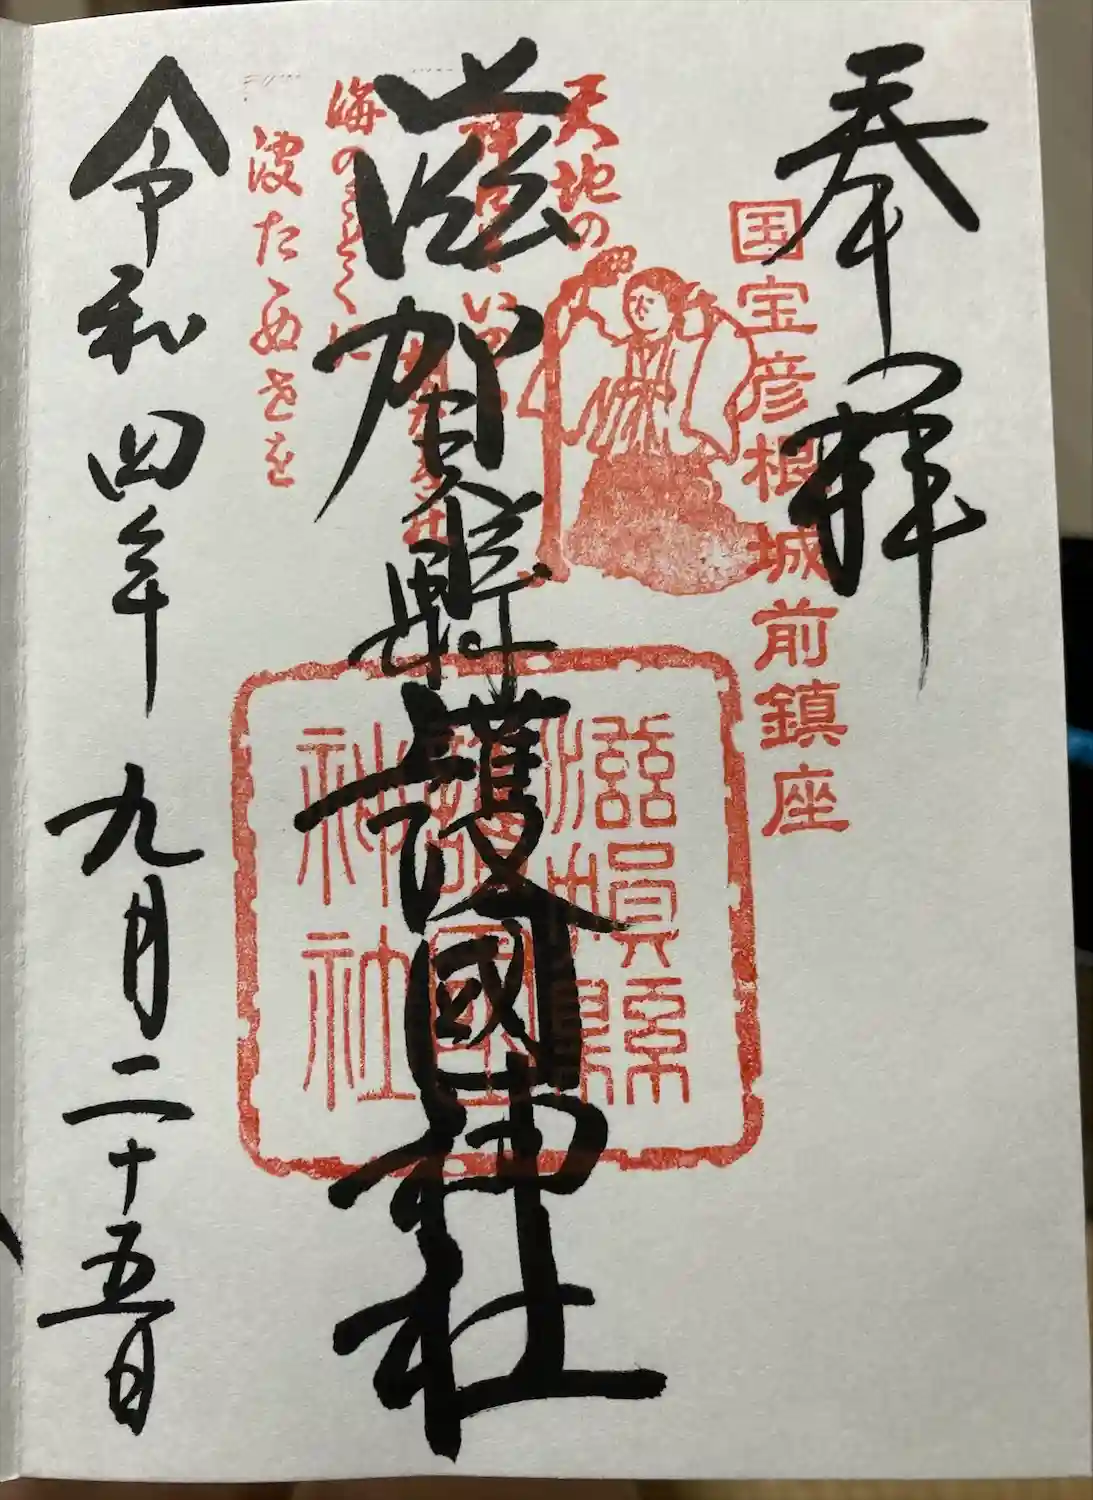 奉拝
国宝彦根城前鎮座
天地の
海の
波たゝぬ世を
滋賀縣護國神社
滋賀縣
護國
神社
令和四年 九月二十五日